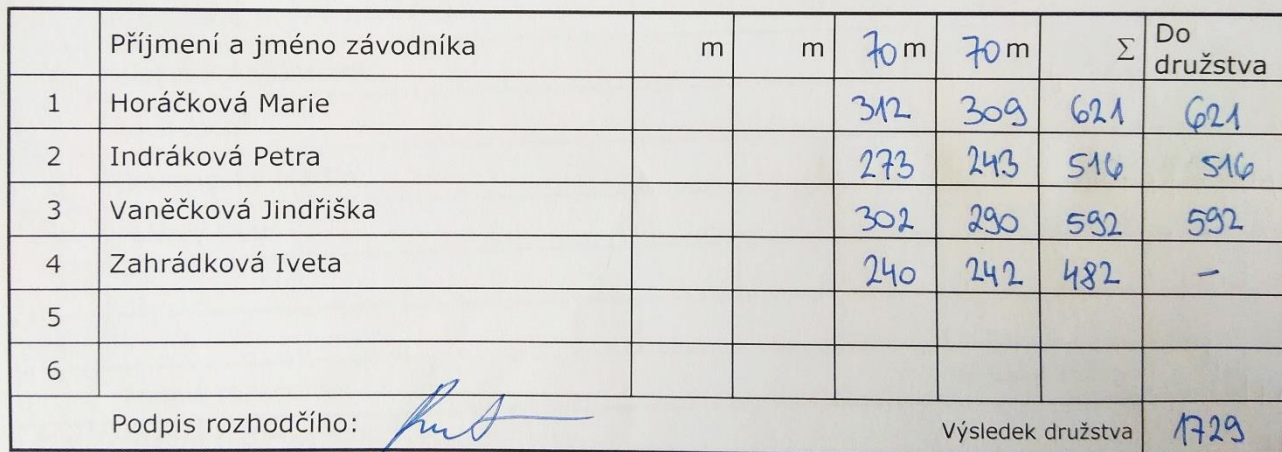 Příjmení a jméno závodníka m m 70 m 70 m Σ Do družstva
1 Horáčková Marie 312 309 621 621
2 Indráková Petra 273 243 516 516
3 Vaněčková Jindřiška 302 290 592 592
4 Zahrádková Iveta 240 242 482 -
5
6
Podpis rozhodčího: Výsledek družstva 1729